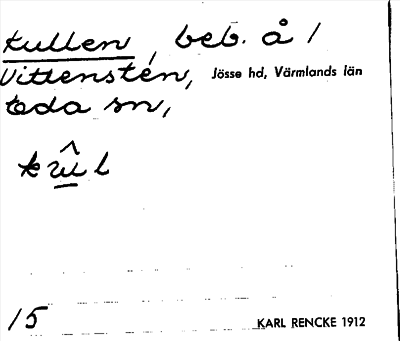 Kullen, beb. å /
Vittensten, Jösse hd, Värmlands län
Eda sn,
15
KARL RENCKE 1912